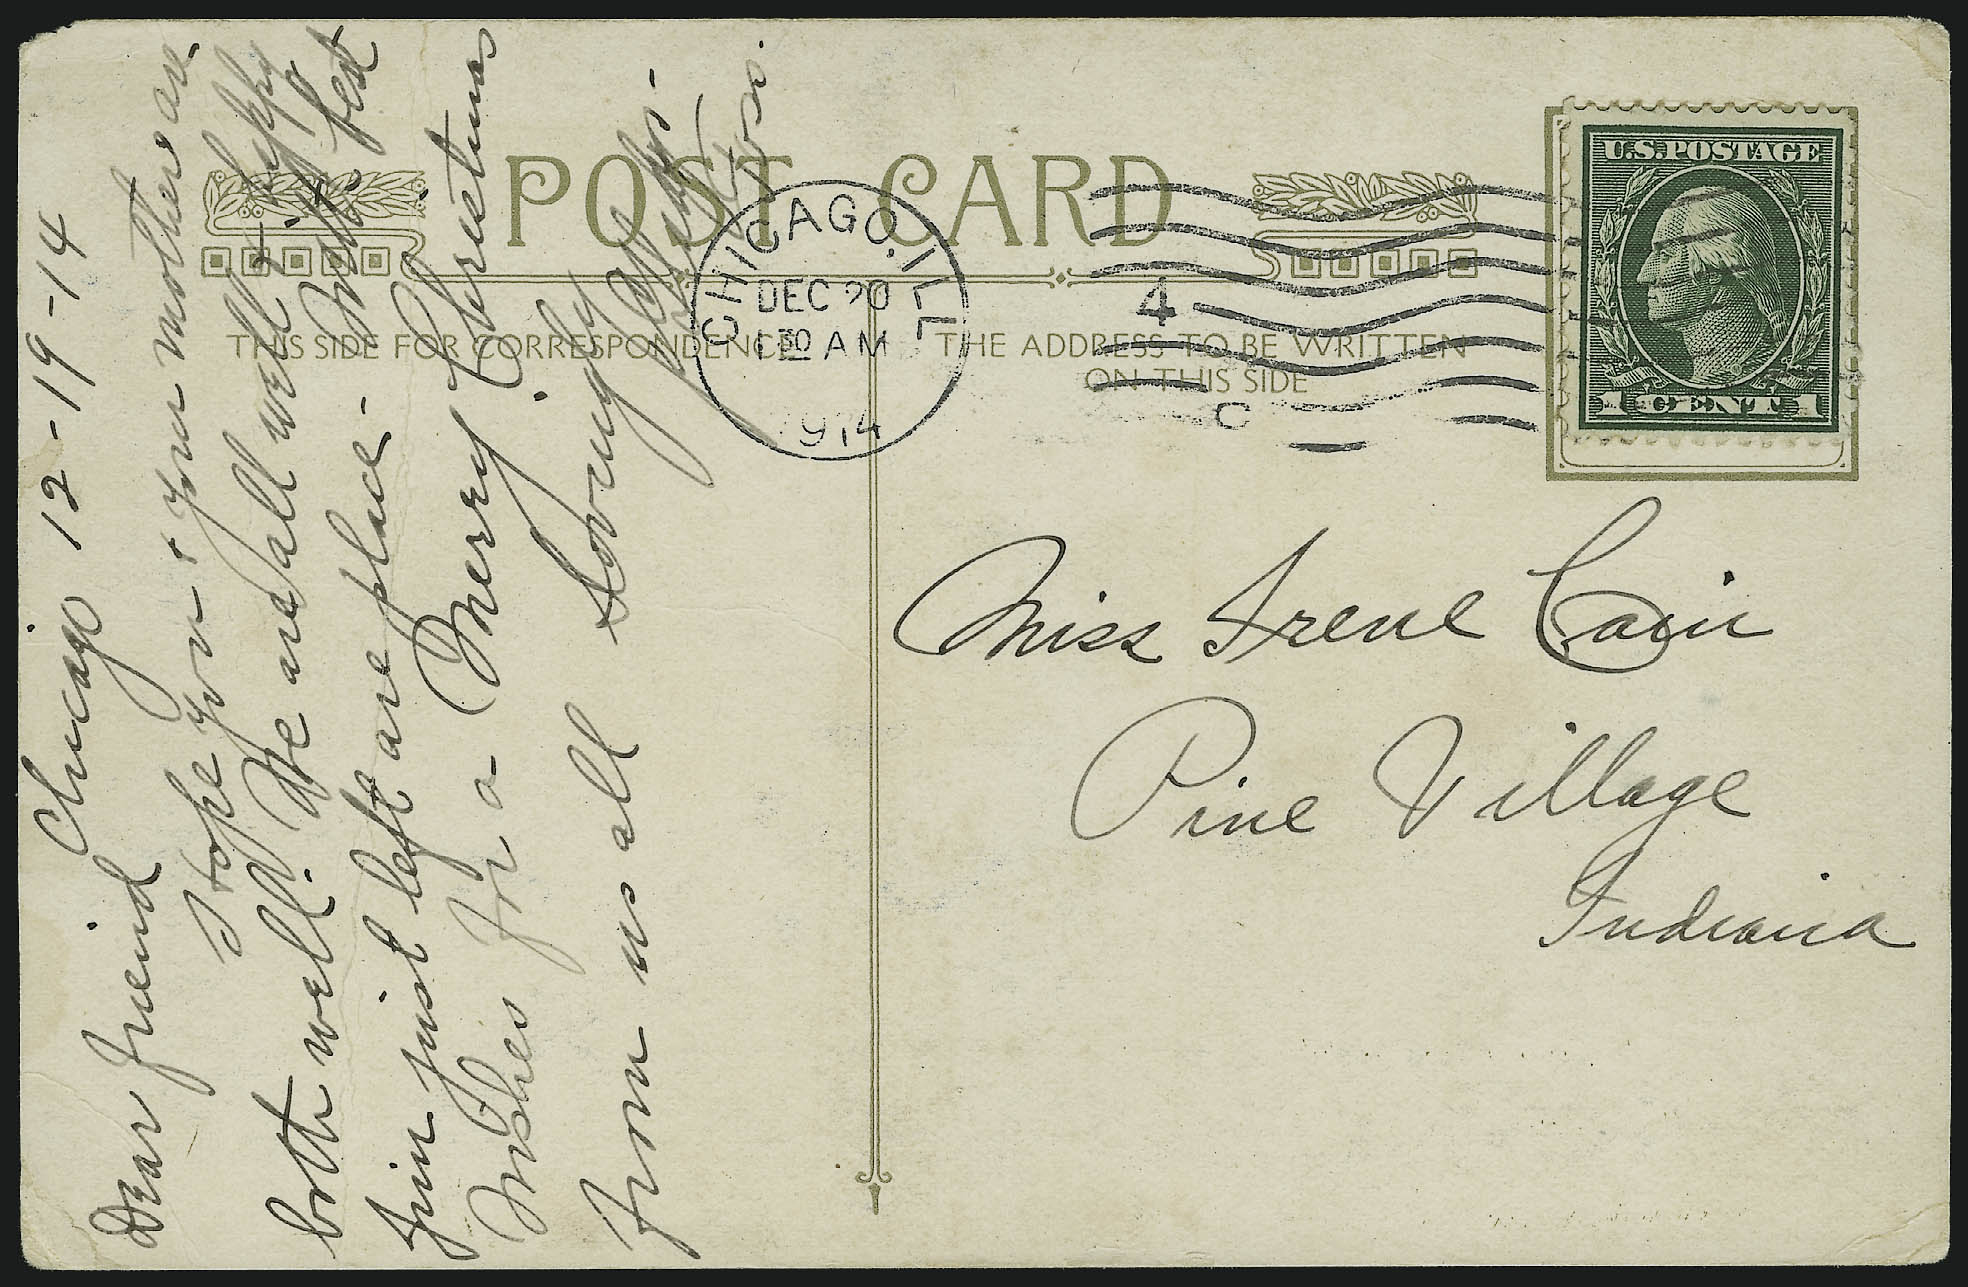 POST CARD
THIS SIDE FOR CORRESPONDENCE
THE ADDRESS TO BE WRITTEN
ON THIS SIDE
CHICAGO, ILL
DEC 20
1 30 AM
1914
4
C
U.S. POSTAGE
1 CENT 1
Miss Irene Cain
Pine Village
Indiana
Chicago 12-19-14
Dear friend
Hope you & your mother are
both well. We are all well & happy
Jim just left are place - With best
Wishes for a Merry Christmas
from us all Lovingly